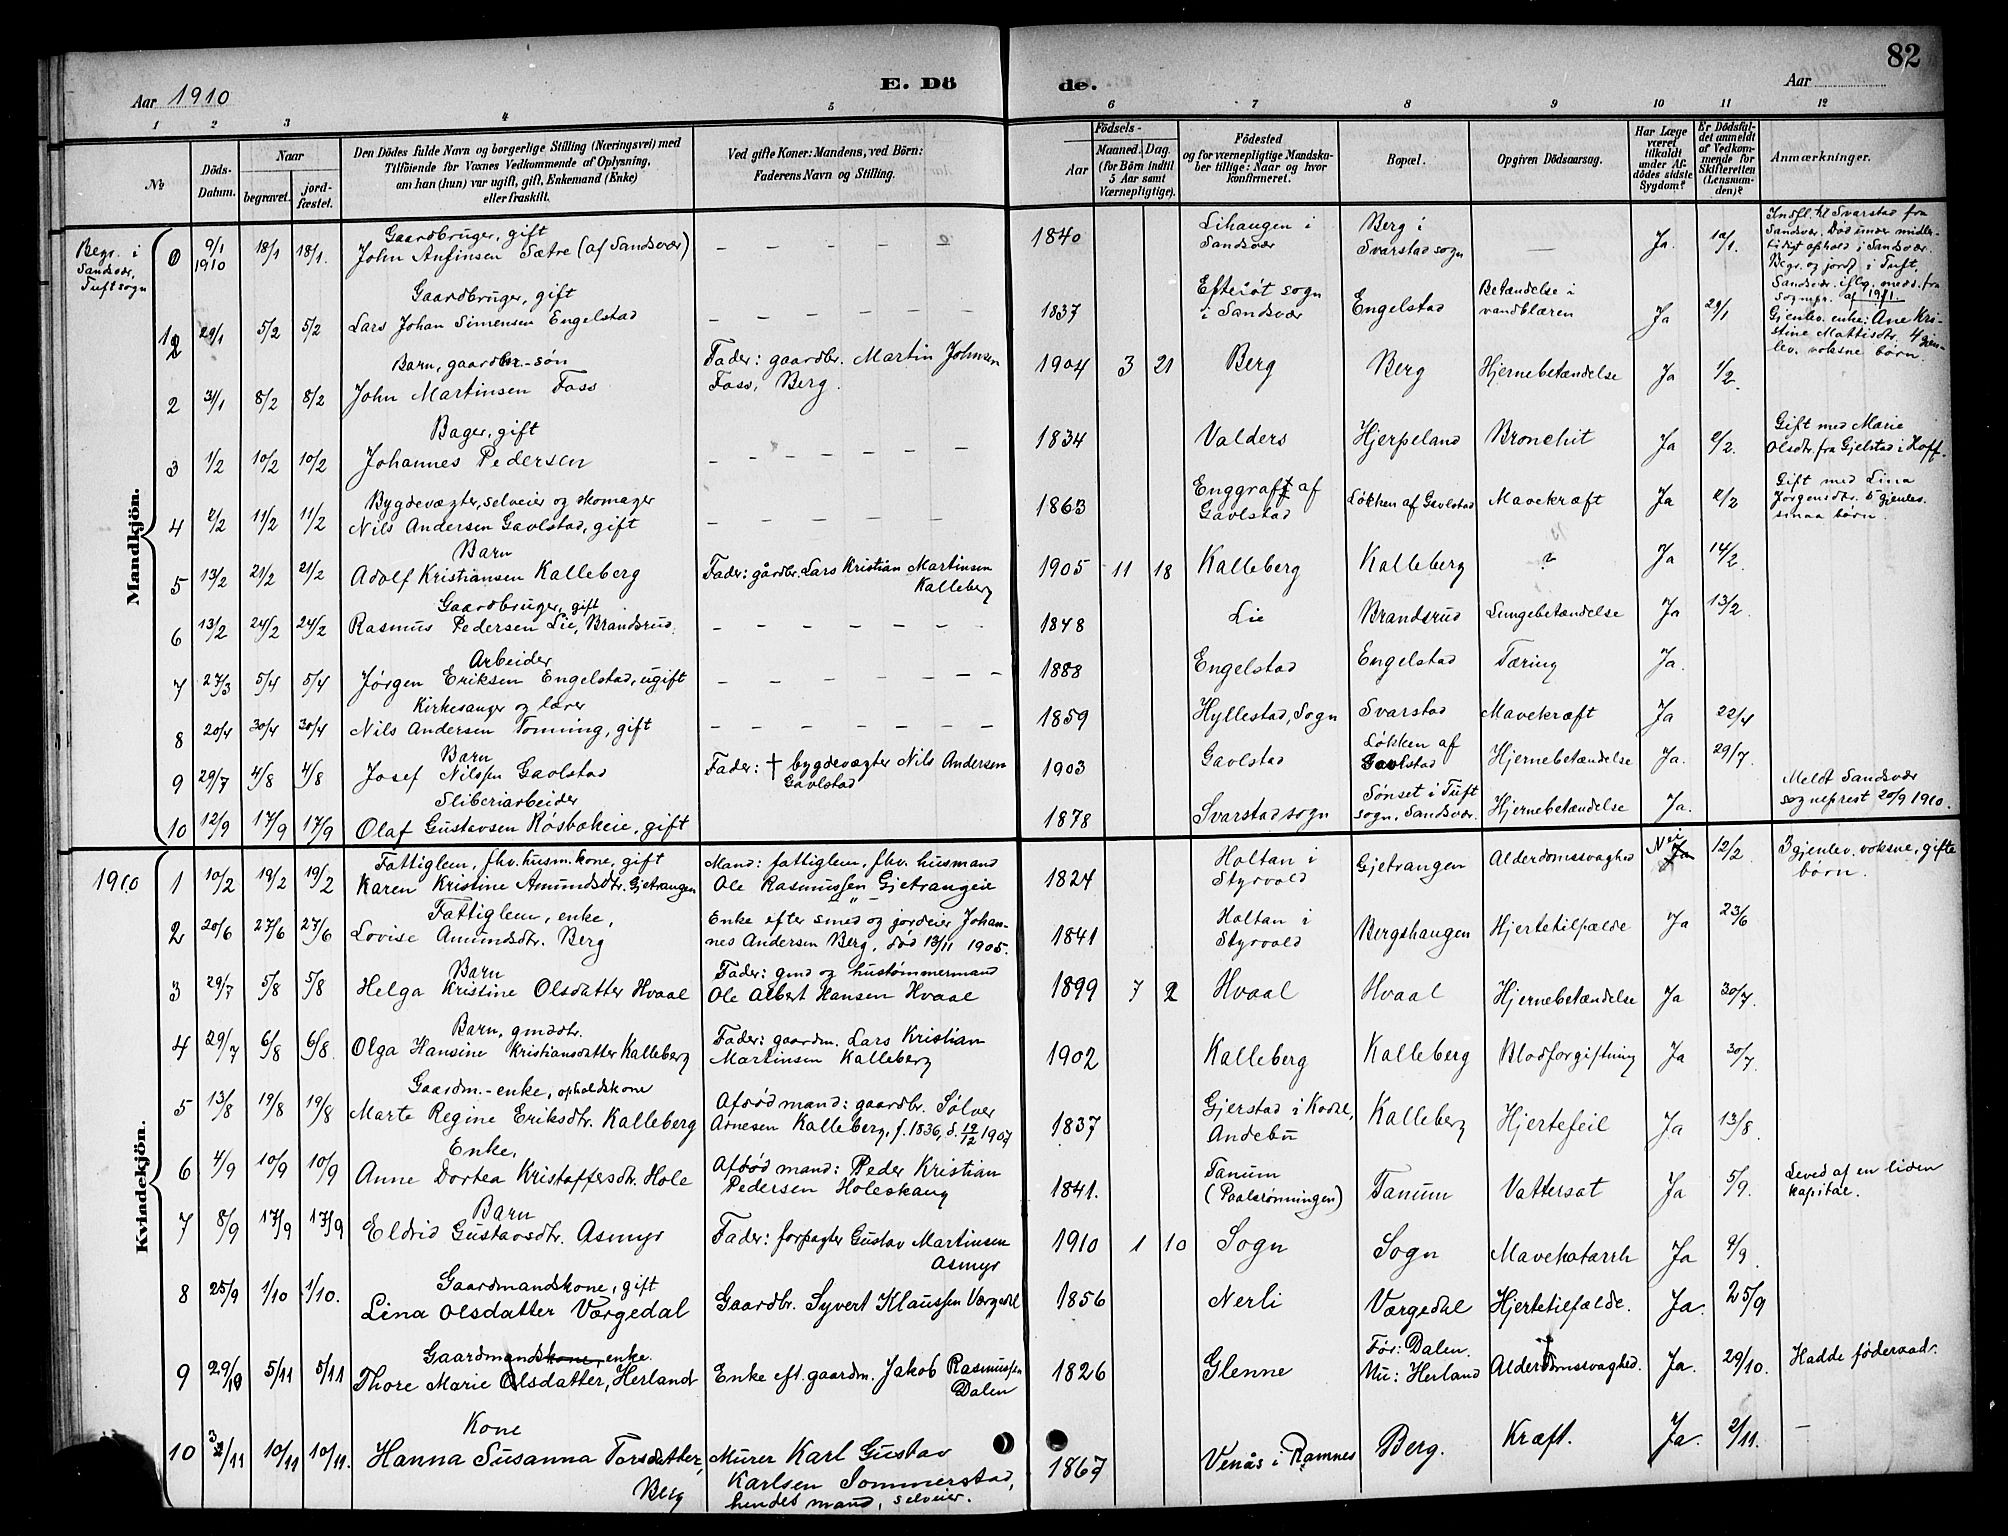 82
Aar 1910
E. Dö
de.
Aar
1 2 3 4 5 6 7 8 9 10 11 12
No
Döds-
Datum.
Naar
begravet.
jord-
fæstet.
Den Dödes fulde Navn og borgerlige Stilling (Næringsvei) med
Tilföiende for Voxnes Vedkommende af Oplysning,
om han (hun) var ugift, gift, Enkemand (Enke)
eller fraskilt.
Ved gifte Koner: Mandens, ved Börn:
Faderens Navn og Stilling.
Födsels-
Aar
Maaned. Dag.
(for Börn indtil
5 Aar samt
Værnepligtige).
Födested
og for værnepligtige Mandska-
ber tillige: Naar og hvor
konfirmeret.
Bopæl.
Opgiven Dödsaarsag.
Har Læge
været
tilkaldt
under Af-
dödes sidste
Sygdom?
Er Dödsfal-
det anmeldt
af Vedkom-
mende for
Skifteretten
(Lensman-
den)?
Anmærkninger.
Mandkjön.
Begr. i
Sandsvær,
Tuft sogn
0 9/1 1910 18/1 18/1. Gaardbruger, gift
John Anfinsen Sætre (af Sandsvær) 1840 Lihaugen i
Sandsvær Berg i
Svarstad sogn — Ja. 12/1. Indfl. til Svarstad fra
Sandsvær. Død under midler-
tidigt ophold i Sandsvær.
Begr. og jordf i Tuft,
Sandsvær iflg. medd. fra
sognepr. af 19/1.
1 29/1 5/2 5/2 Gaardbruger, gift
Lars Johan Simensen Engelstad 1837 Efteløt sogn
i Sandsvær Engelstad Betændelse i
vandblæren Ja 29/1 Gjenlev. enke: Ane Kri-
stine Mattisdtr. 4 gjen-
lev. voksne børn.
2 31/1 8/2 8/2 Barn, gaardbr.-søn
John Martinsen Foss Fader: gaardbr. Martin Johnsen
Foss, Berg. 1904 3 21 Berg Berg Hjernebetændelse Ja 1/2.
3 1/2 10/2 10/2 Bager, gift
Johannes Pedersen 1834 Valders Hjerpeland Bronchit Ja 2/2. Gift med Marie
Olsdtr. fra Gjelstad i Hoff.
4 2/2 11/2 11/2 Bygdevægter, selveier og skomager
Nils Andersen Gavlstad, gift 1863 Enggraff af
Gavlstad Løkken af Gavlstad Mavekræft Ja 2/2 Gift med Lina
Jørgensdtr. 5 gjenlev.
smaa børn.
5 13/2 21/2 21/2 Barn
Adolf Kristiansen Kalleberg Fader: gårdbr. Lars Kristian Martinsen
Kalleberg 1905 11 18 Kalleberg Kalleberg ? Ja 14/2.
6 13/2 24/2 24/2 Gaardbruger, gift
Rasmus Pedersen Lie, Brandsrud. 1848 Lie Brandsrud Lungebetændelse Ja 13/2.
7 27/3 5/4 5/4 Arbeider
Jørgen Eriksen Engelstad, ugift 1888 Engelstad Engelstad Tæring Ja.
8 20/4 30/4 30/4 Kirkesanger og lærer
Nils Andersen Tonning, gift 1859 Hyllestad, Sogn Svarstad Mavekræft Ja 22/4
9 29/7 4/8 4/8 Barn
Josef Nilssen Gavlstad Fader: † bygdevægter Nils Andersen
Gavlstad 1903 Gavlstad Løkken af
Gavlstad Hjernebetændelse Ja. 29/7.
10 12/9 17/9 17/9 Sliberiarbeider
Olaf Gustavsen Røsbakeie, gift 1878 Svarstad sogn Sønset i Tuft
sogn, Sandsvær. Hjernebetændelse Ja. Meldt Sandsvær
sogneprest 20/9 1910.
Kvindekjön.
1910
1 10/2 19/2 19/2 Fattiglem, fhv. husm. kone, gift
Karen Kristine Amundsdtr. Gjetrangen Mand: fattiglem, fhv. husmand
Ole Rasmussen Gjetrangeie 1824 Holtan i
Styrvold Gjetrangen Alderdomssvaghed Nei Ja 12/2. 3 gjenlev. voksne, gifte
børn.
2 20/6 27/6 27/6 Fattiglem, enke,
Lovise Amundsdtr. Berg Enke efter smed og jordeier Johan-
nes Andersen Berg, død 13/11 1905. 1841 Holtan i
Styrvold Bergshaugen Hjertetilfælde Ja 23/6
3 29/7 5/8 5/8 Barn
Helga Kristine Olsdatter Hvaal Fader: gmd og hustømmermand
Ole Albert Hansen Hvaal 1899 7 2 Hvaal Hvaal Hjernebetændelse Ja 30/7.
4 29/7 6/8 6/8. Barn, gmddtr.
Olga Hansine Kristiansdatter Kalleberg Fader: gaardm. Lars Kristian
Martinsen Kalleberg 1902 Kalleberg Kalleberg Blodforgiftning Ja 30/7.
5 13/8 19/8 19/8 Gaardm.-enke, opholdskone
Marte Regine Eriksdtr. Kalleberg Afdød mand: gaardbr. Sølver
Arnesen Kalleberg, f. 1836, d. 19/12 1907 1837 Gjerstad i Kodal,
Andebu Kalleberg Hjertefeil Ja 13/8.
6 4/9 10/9 10/9 Enke,
Anne Dortea Kristoffersdtr. Hole Afdød mand: Peder Kristian
Pedersen Holeskaug 1841. Tanum
(Paalsrønningen) Tanum Vattersot Ja 5/9. Leved af en liden
kapital.
7 8/9 17/9 17/9 Barn
Eldrid Gustavsdtr. Asmyr Fader: forpagter Gustav Martinsen
Asmyr 1910 1 10 Sogn Sogn Mavekatarrh Ja 9/9.
8 25/9 1/10 1/10. Gaardmandskone, gift
Lina Olsdatter Vargedal Gaardbr. Syvert Klaussen Vargedal 1856 Nerli Vargedal Hjertetilfælde. Ja. 25/9
9 29/10 5/11 5/11 Gaardmandskone, enke.
Thore Marie Olsdatter, Herland Enke eft. gaardm. Jakob Rasmussen
Dalen 1826 Glenne Før: Dalen.
Nu: Herland Alderdomssvaghed. Ja. 29/10. Hadde føderaad.
10 3/11 10/11 10/11. Kone
Hanna Susanna Torsdatter,
Berg Murer Karl Gustav
Karlsen Sommerstad,
hendes mand, selveier. 1867 Venås i Ramnes Berg. Kræft. Ja. 2/11. —